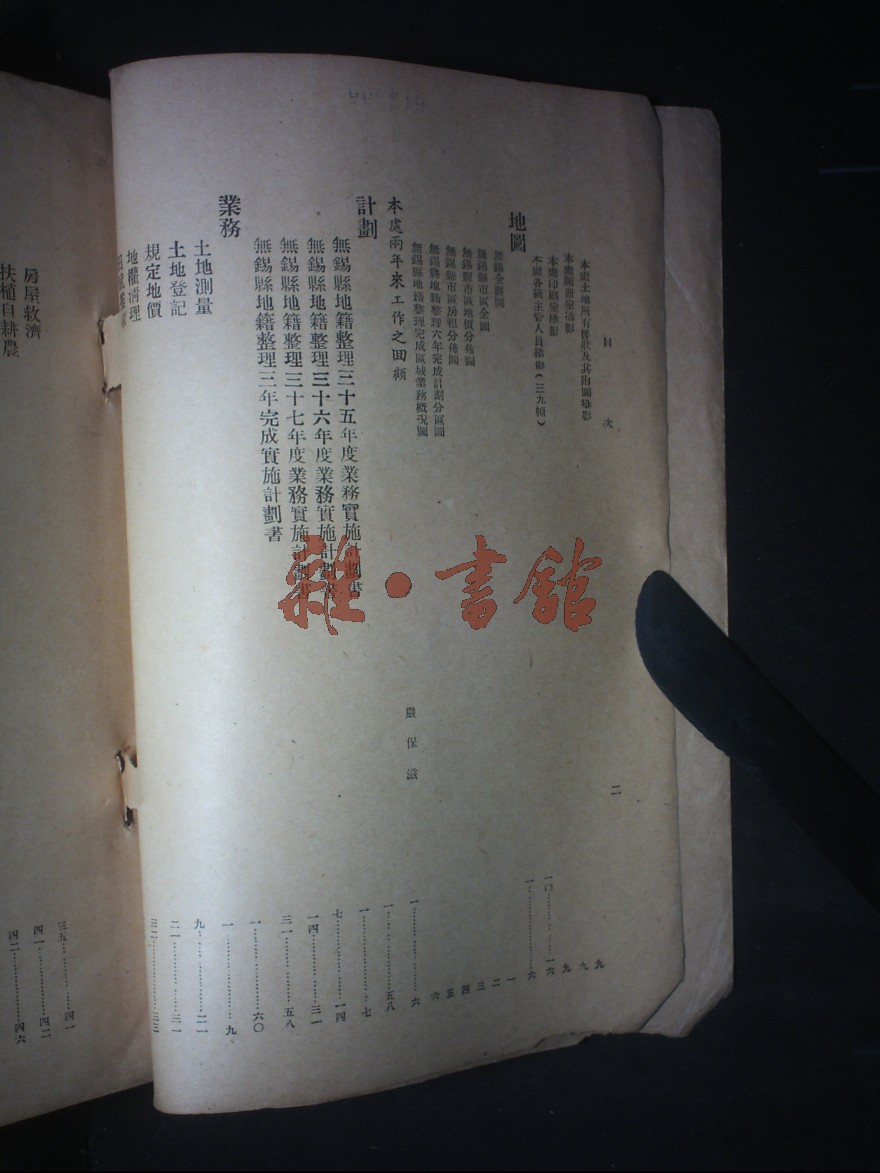 目次
二
本處土地所有權狀及其附圖攝影
九
本處圖籍室攝影
九
本處印刷室攝影
九
本處各級主管人員攝影(三九幀)
一〇……一六
地圖
一……六
無錫全縣圖
一
無錫縣市區全圖
二
無錫縣市區地價分佈圖
三
無錫縣市區房租分佈圖
四
無錫縣地籍整理六年完成計劃分區圖
五
無錫縣地籍整理完成區域業務概況圖
六
本處兩年來工作之回顧
嚴保滋
一……六
計劃
一……五八
無錫縣地籍整理三十五年度業務實施計劃書
一……七
無錫縣地籍整理三十六年度業務實施計劃書
七……一四
無錫縣地籍整理三十七年度業務實施計劃書
一四……三一
無錫縣地籍整理三年完成實施計劃書
三一……五八
業務
一……六〇
土地測量
一……九
土地登記
九……二一
規定地價
二一……三一
地權清理
三二……三三
房屋救濟
扶植自耕農
三五……四一
四一……四二
四二……四六
雜·書館